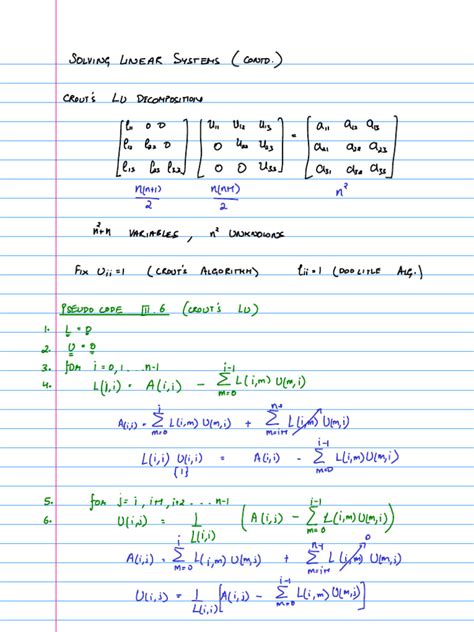 SOLVING LINEAR SYSTEMS (CONTD.)
CROUT'S LU DECOMPOSITION
[l₁₁ 0 0] [u₁₁ u₁₂ u₁₃] = [a₁₁ a₁₂ a₁₃]
[l₁₂ l₂₂ 0] [0 u₂₂ u₂₃] [a₂₁ a₂₂ a₂₃]
[l₁₃ l₂₃ l₃₂] [0 0 u₃₃] [a₃₁ a₃₂ a₃₃]
n(n+1)/2 n(n+1)/2 n²
n²+n VARIABLES, n² UNKNOWNS
FIX Uii=1 (CROUT'S ALGORITHM) lii=1 (DOOLITLE ALG.)
PSEUDO CODE III.6 (CROUT'S LU)
1. L = 0
2. U = 0
3. FOR i = 0,1.... n-1
4. L(i,i) = A(i,i) - Σ_{m=0}^{i-1} L(i,m) U(m,i)
A(i,i) = Σ_{m=0}^{i} L(i,m) U(m,i) + Σ_{m=i+1}^{n-1} L(i,m) U(m,i)
L(i,i) U(i,i) = A(i,i) - Σ_{m=0}^{i-1} L(i,m) U(m,i)
{1}
5. for j = i, i+1, i+2 .... n-1
6. U(i,j) = 1/L(i,i) (A(i,j) - Σ_{m=0}^{i-1} L(i,m) U(m,j))
A(i,j) = Σ_{m=0}^{i} L(i,m) U(m,j) + Σ_{m=i+1}^{n-1} L(i,m) U(m,j) 0
U(i,j) = 1/L(i,i) [A(i,j) - Σ_{m=0}^{i-1} L(i,m) U(m,j)]